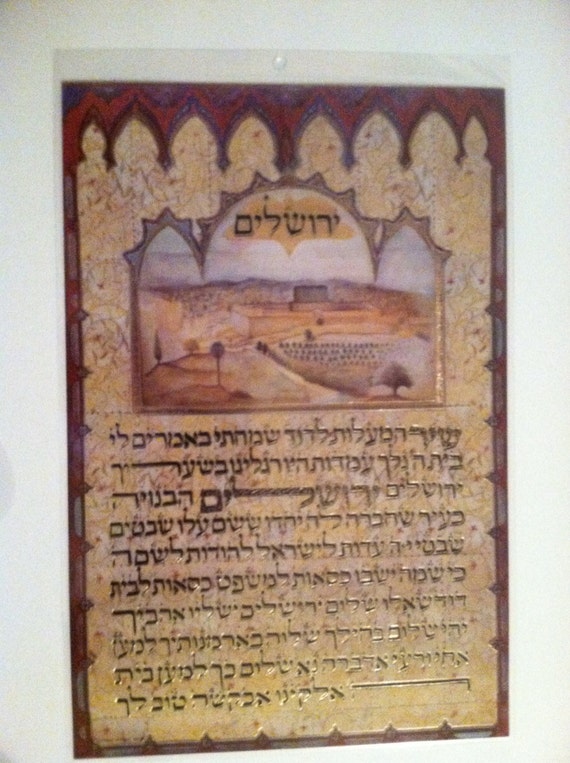 ירושלים
שיר המעלות לדוד שמחתי באמרים לי
בית ה' נלך עמדות היו רגלינו בשעריך
ירושלים ירושלים הבנויה
כעיר שחברה לה יחדו ששם עלו שבטים
שבטי י-ה עדות לישראל להודות לשם ה'
כי שמה ישבו כסאות למשפט כסאות לבית
דוד שאלו שלום ירושלים ישליו אהביך
יהי שלום בחילך שלוה בארמנותיך למען
אחי ורעי אדברה נא שלום בך למען בית
ה' אלקינו אבקשה טוב לך